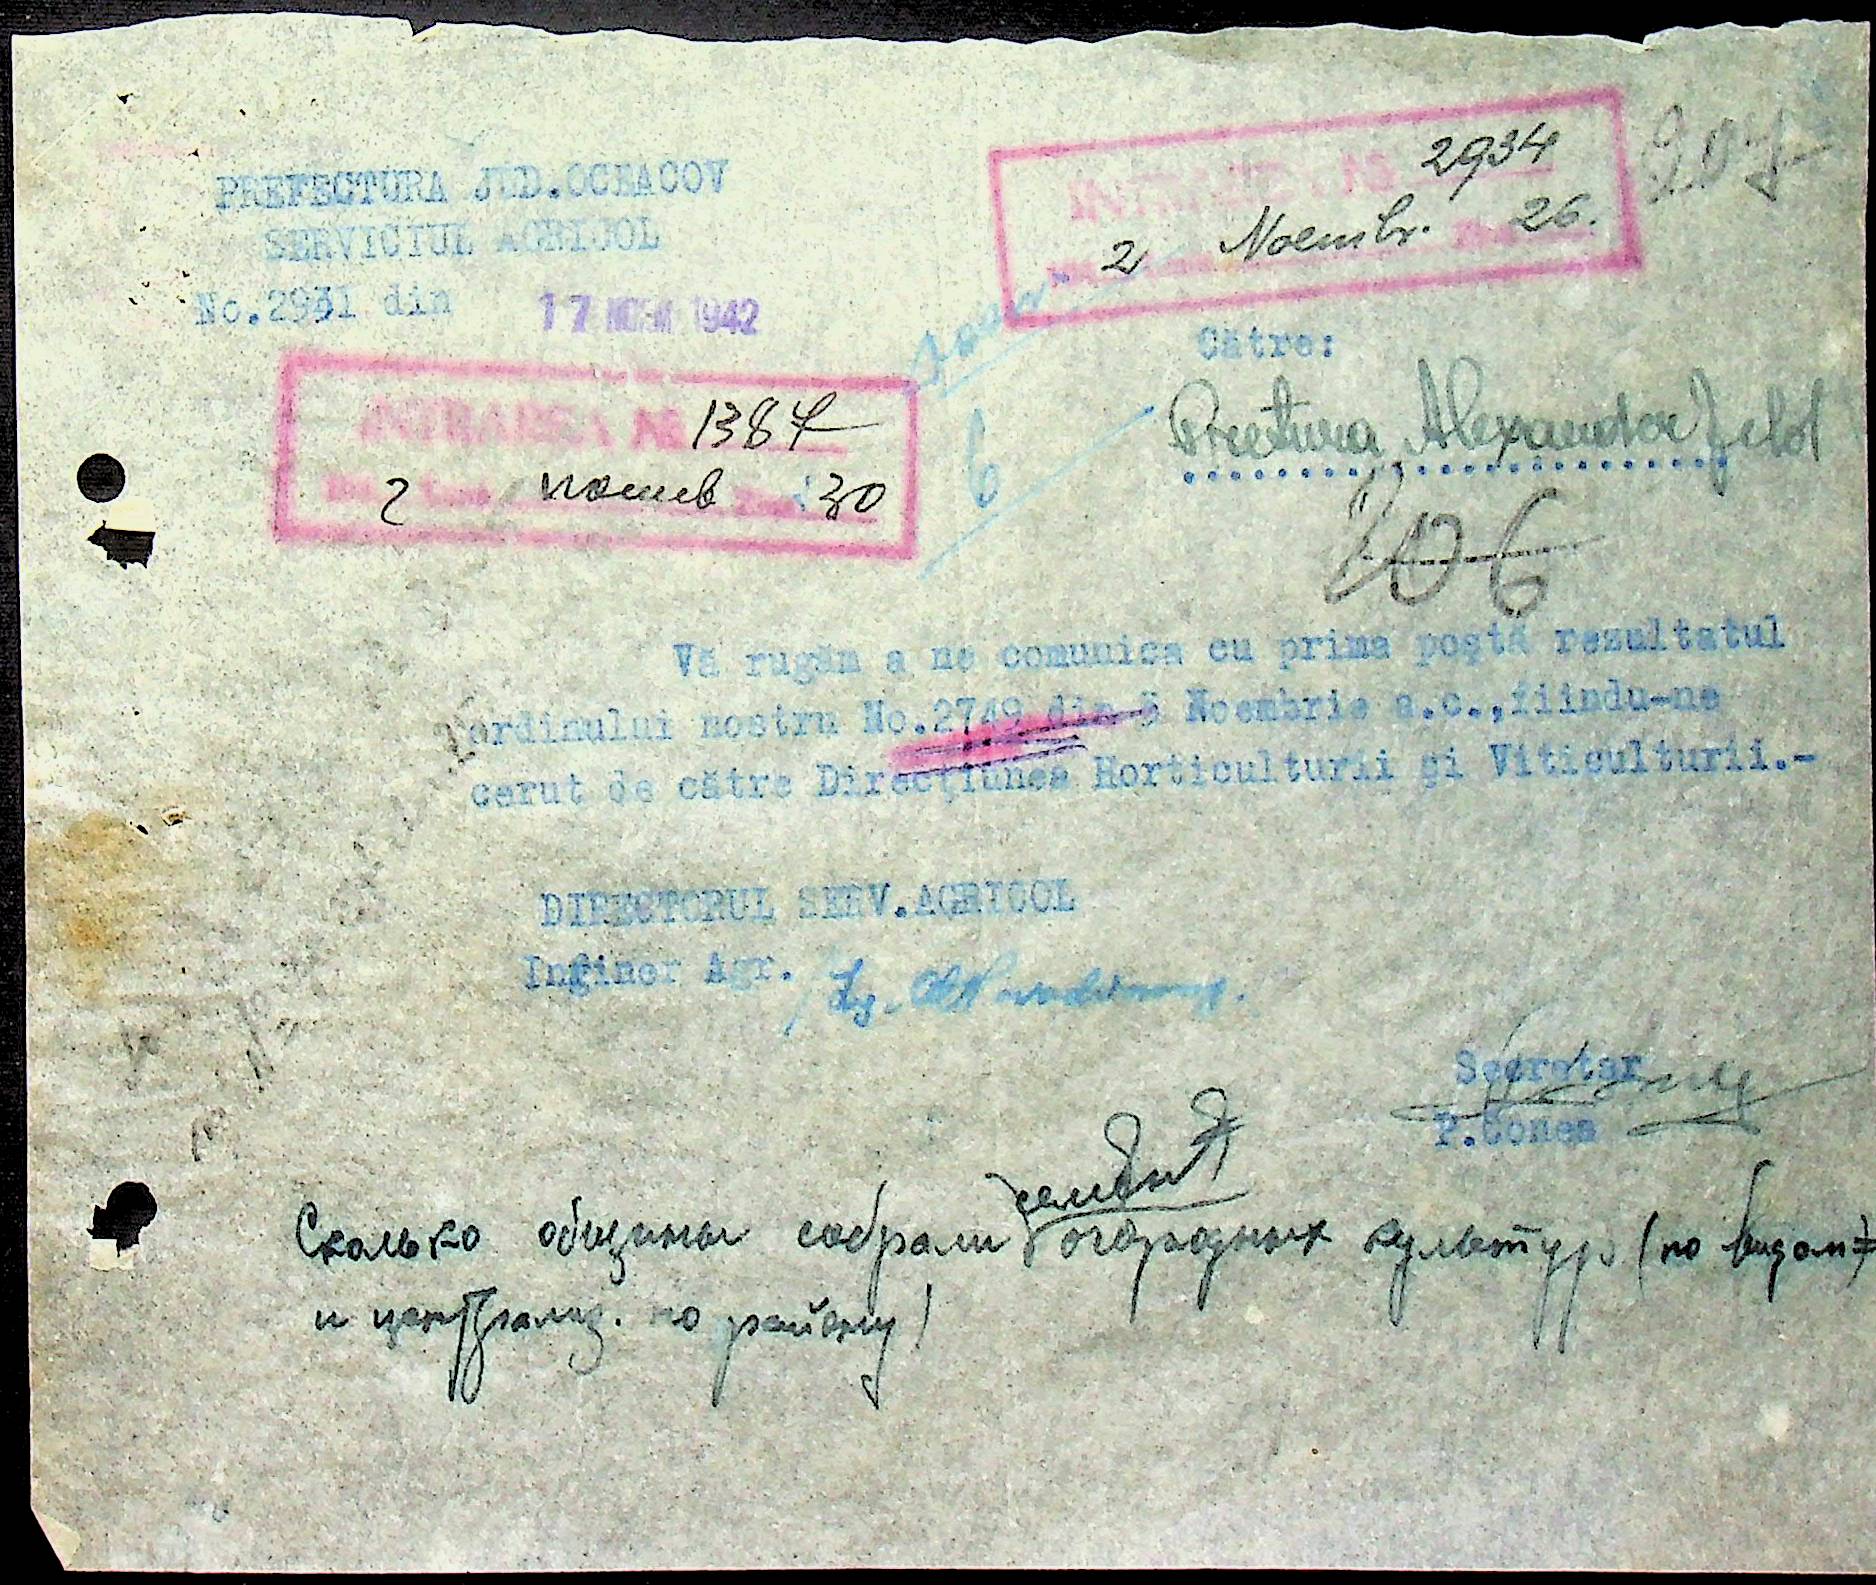 PREFECTURA JUD.OCEACOV
SERVICIUL AGRICOL
No.2931 din 17 NOEM 1942
INTRAREA № 2934
2 Noembr. 26.
207
INTRAREA № 1387
2 30
6
Către:
Pretura Alexanderfeld
206
Vă rugăm a ne comunica cu prima poştă rezultatul
ordinului nostru No.2749 din 5 Noembrie a.c.,fiindu-ne
cerut de către Direcţiunea Horticulturii şi Viticulturii.-
DIRECTORUL SERV.AGRICOL
Inginer Agr.
Secretar
P.Conea
семян
Сколько общины собрали огородных культур (по видам)
и централиз. по району!